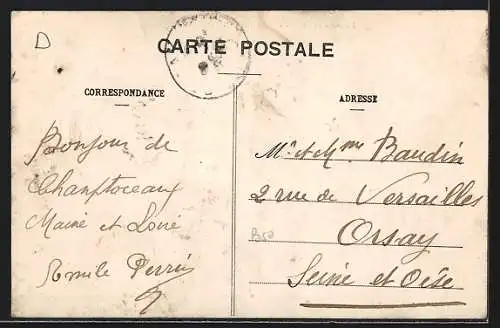 D
CARTE POSTALE
CORRESPONDANCE
ADRESSE
Bonjour de
Champtoceaux
Maine et Loire
Emile Perrin
Mr et Mme Baudin
2 rue de Versailles
Orsay
Seine et Oise